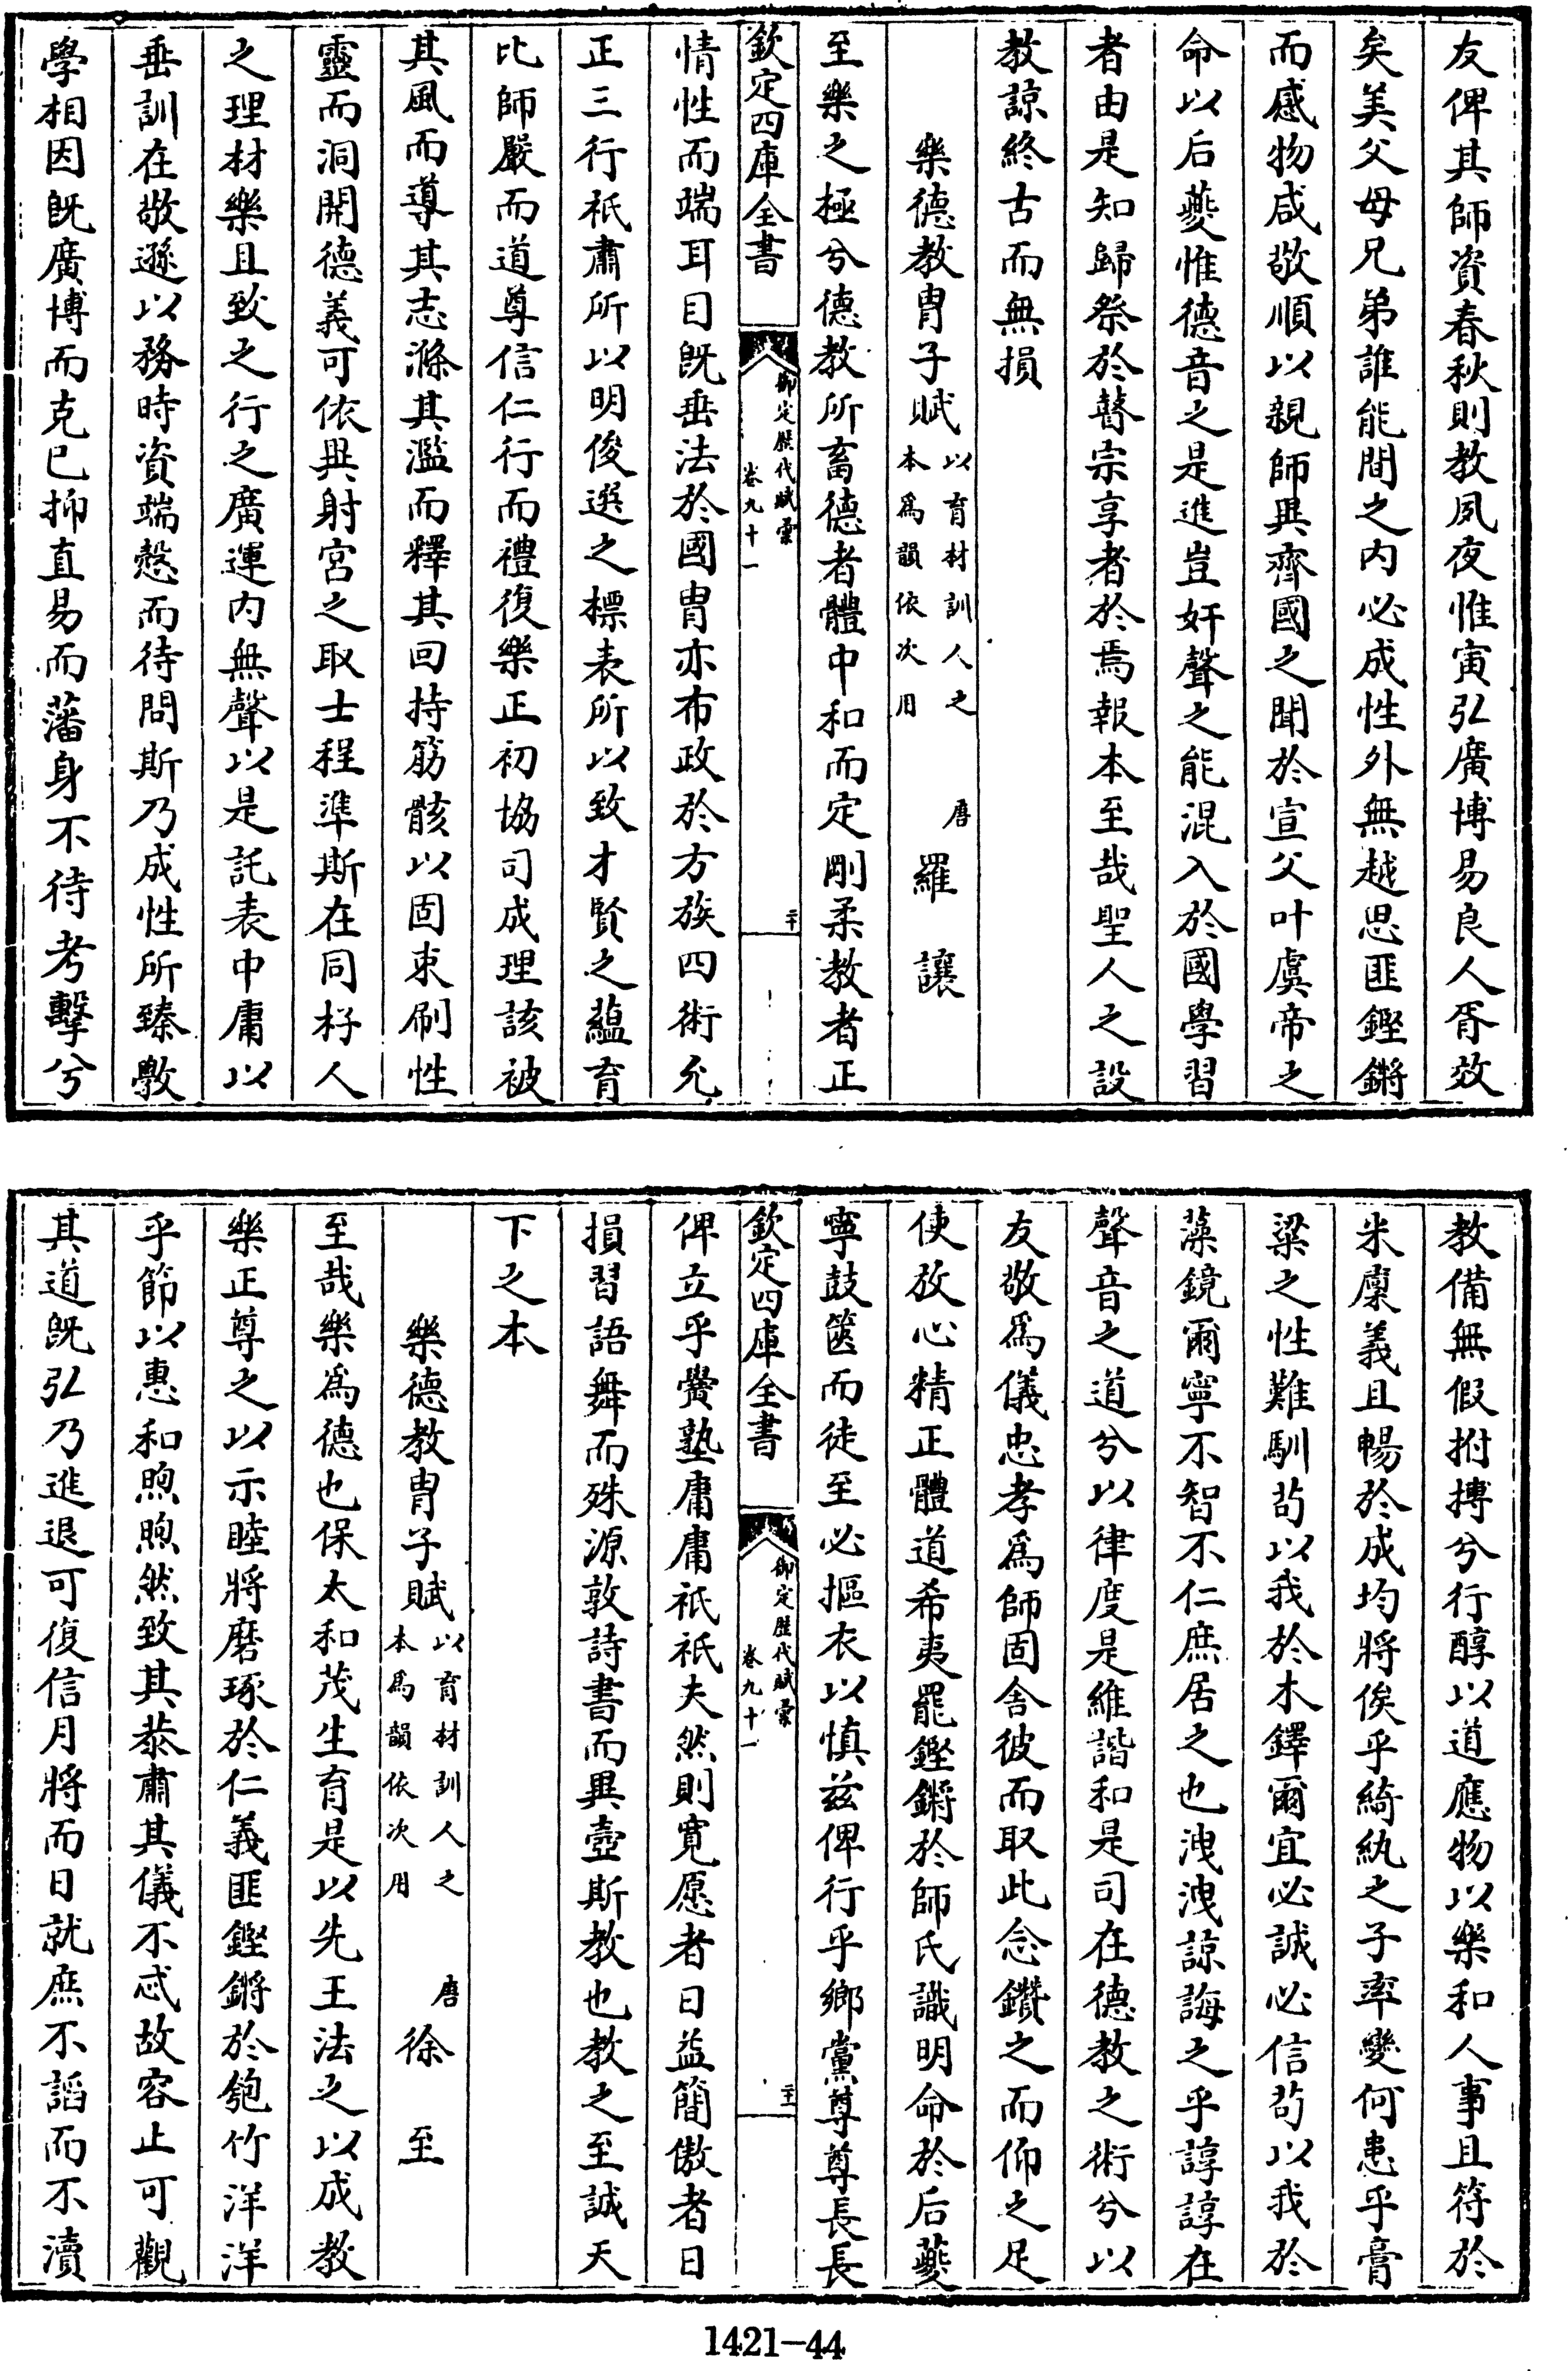 友俾其師資春秋則教夙夜惟寅弘廣博易良人胥效
矣美父母兄弟誰能間之内必成性外無越思匪鏗鏘
而感物咸敬順以親師異齊國之聞於宣父叶虞帝之
命以后夔惟德音之是進豈奸聲之能混入於國學習
者由是知歸祭於瞽宗享者於焉報本至哉聖人之設
教諒終古而無損
樂德教胄子賦
以育材訓人之
本爲韻依次用
唐
羅讓
至樂之極兮德教所畜德者體中和而定剛柔教者正
欽定四庫全書
御定歷代賦彙
卷九十一
二十
情性而端耳目既垂法於國胄亦布政於方族四術允
正三行祇肅所以明俊選之標表所以致才賢之蘊育
比師嚴而道尊信仁行而禮復樂正初協司成理該被
其風而導其志滌其濫而釋其回持筋骸以固束刷性
靈而洞開德義可依異射宮之取士程準斯在同杍人
之理材樂且致之行之廣運内無聲以是託表中庸以
垂訓在敬遜以務時資端慤而待問斯乃成性所臻斆
學相因既廣博而克已抑直易而藩身不待考擊兮
教備無假拊搏兮行醇以道應物以樂和人事且符於
米廩義且暢於成均將俟乎綺紈之子率變何患乎膏
粱之性難馴苟以我於木鐸爾宜必誠必信苟以我於
藻鏡爾寧不智不仁庶居之也洩洩諒誨之乎諄諄在
聲音之道兮以律度是維諧和是司在德教之術兮以
友敬爲儀忠孝爲師固舍彼而取此念鑽之而仰之足
使放心精正體道希夷罷鏗鏘於師氏識明命於后夔
寧鼓篋而徒至必摳衣以慎兹俾行乎鄉黨尊尊長長
欽定四庫全書
御定歷代賦彙
卷九十一
二十一
俾立乎黌塾庸庸祇祇夫然則寛愿者日益簡傲者日
損習語舞而殊源敦詩書而異壺斯教也教之至誠天
下之本
樂德教胄子賦
以育材訓人之
本爲韻依次用
唐
徐至
至哉樂爲德也保太和茂生育是以先王法之以成教
樂正尊之以示睦將磨琢於仁義匪鏗鏘於匏竹洋洋
乎節以惠和煦煦然致其恭肅其儀不忒故容止可觀
其道既弘乃進退可復信月將而日就庶不謟而不瀆
1421-44